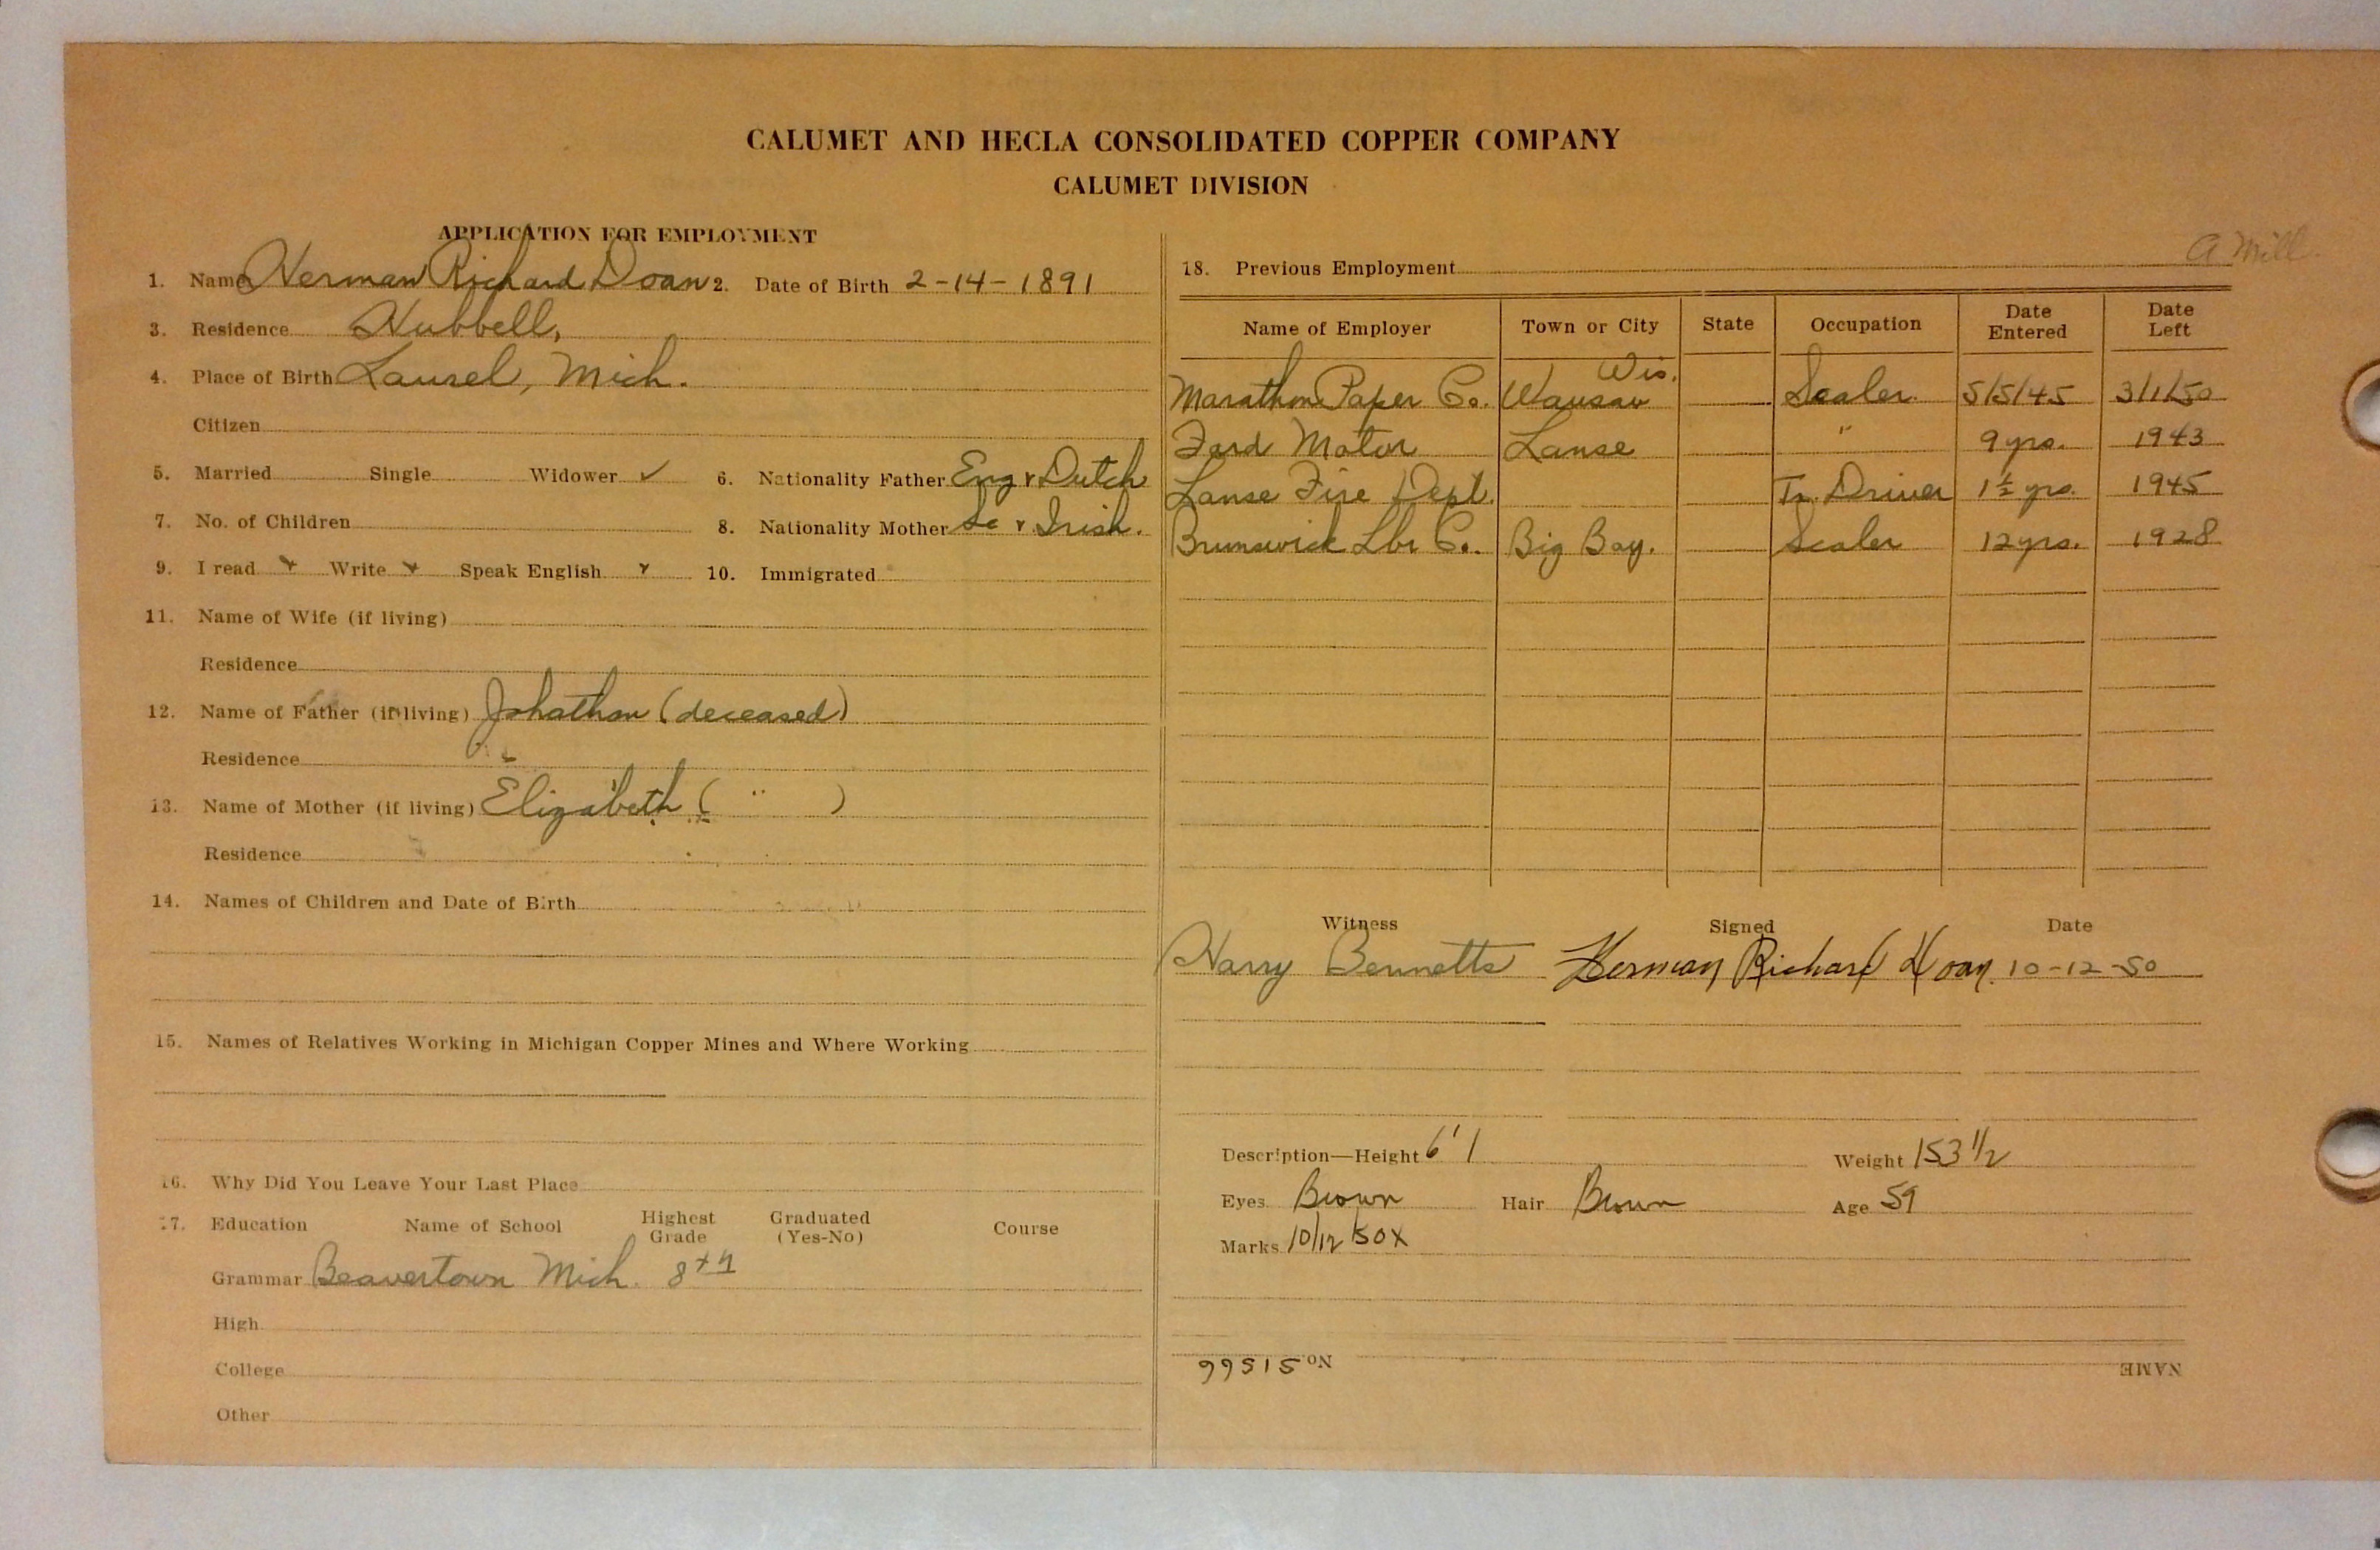 CALUMET AND HECLA CONSOLIDATED COPPER COMPANY
CALUMET DIVISION
APPLICATION FOR EMPLOYMENT
1. Name Herman Richard Doan 2. Date of Birth 2-14-1891
3. Residence Hubbell,
4. Place of Birth Laurel, Mich.
Citizen
5. Married Single Widower ✓ 6. Nationality Father Eng & Dutch
7. No. of Children 8. Nationality Mother Sc & Irish.
9. I read x Write x Speak English x 10. Immigrated
11. Name of Wife (if living)
Residence
12. Name of Father (if living) Johathan (deceased)
Residence
13. Name of Mother (if living) Elizabeth ( " )
Residence
14. Names of Children and Date of Birth
15. Names of Relatives Working in Michigan Copper Mines and Where Working
16. Why Did You Leave Your Last Place
17. Education Name of School Highest Grade Graduated (Yes-No) Course
Grammar Beavertown Mich. 8th
High
College
Other
A Mill.
18. Previous Employment
Name of Employer Town or City State Occupation Date Entered Date Left
Marathon Paper Co. Wausau Wis. Scaler 5/5/45 3/1/50
Ford Motor Lanse " 9 yrs. 1943
Lanse Fire Dept. Tr. Driver 1½ yrs. 1945
Brunswick Lbr Co. Big Bay. Scaler 12 yrs. 1928
Witness Signed Date
Harry Bennetts Herman Richard Doan 10-12-50
Description—Height 6'1 Weight 153 1/2
Eyes Brown Hair Brown Age 59
Marks 10/12/50 X
NAME No 51566